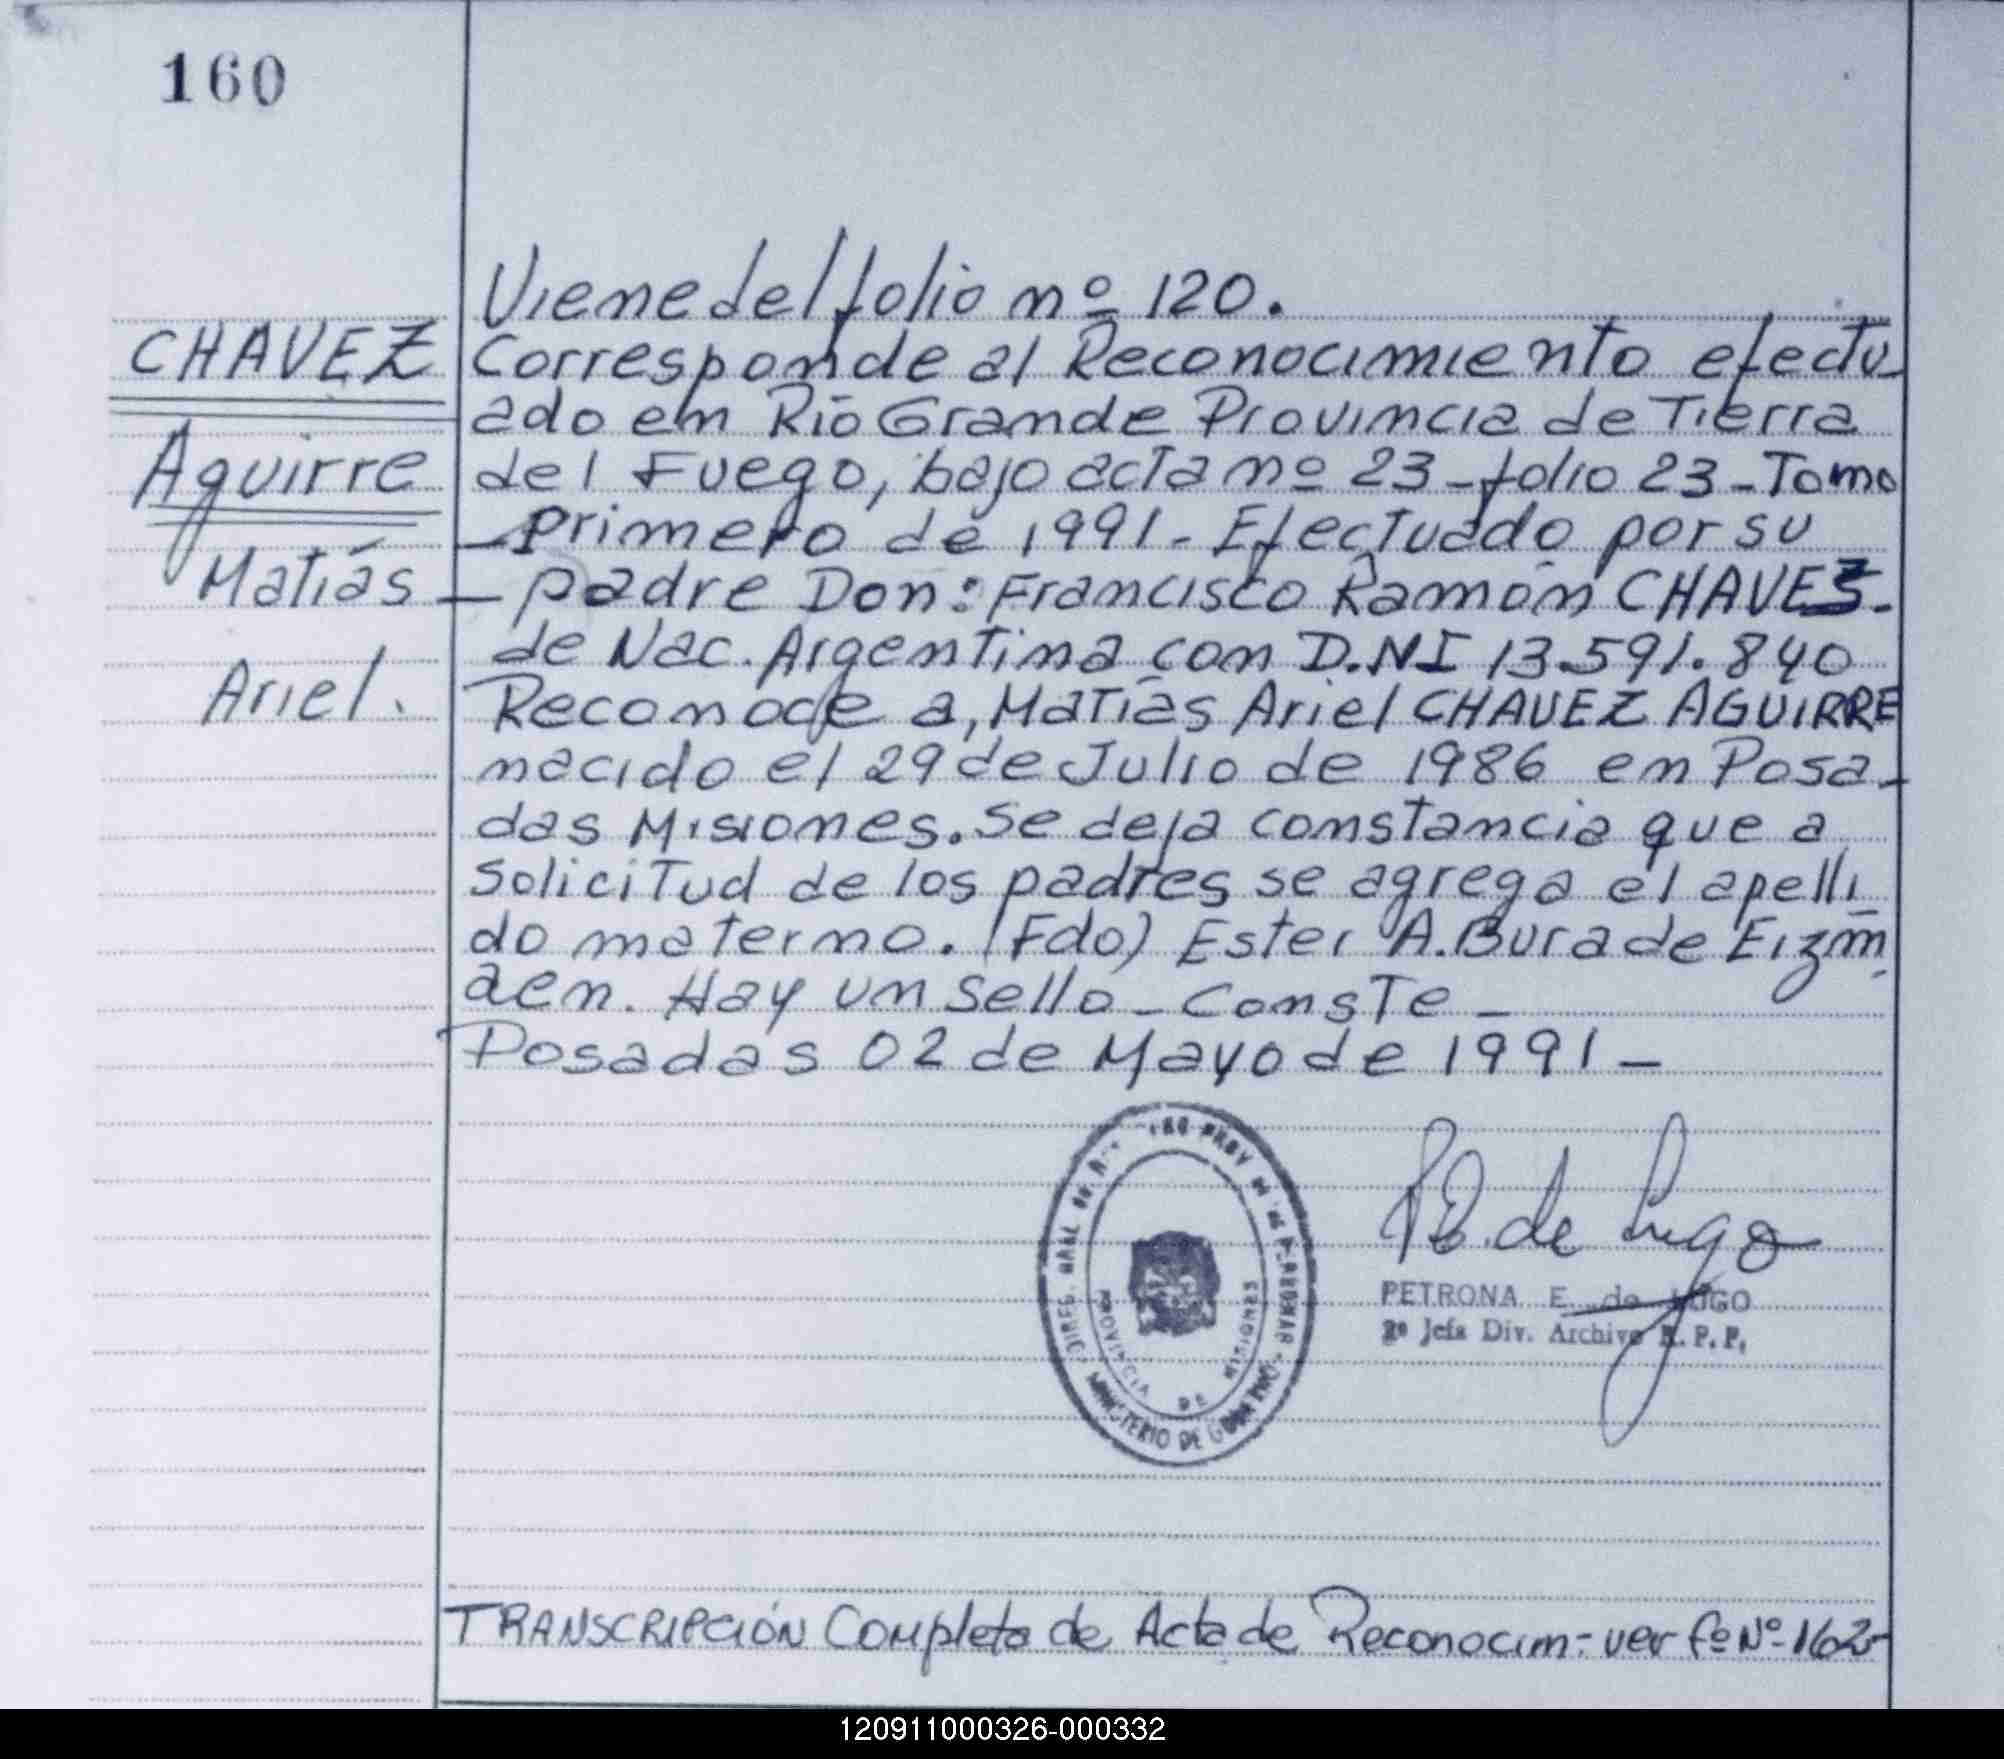 160
Viene del folio nº 120.
CHAVEZ
Aguirre
Matías
Ariel.
Corresponde al Reconocimiento efectu-
ado en Río Grande Provincia de Tierra
del Fuego, bajo acta nº 23 - folio 23 - Tomo
- Primero de 1991 - Efectuado por su
- padre Don: Francisco Ramón CHAVEZ.
de Nac. Argentina con D.NI 13.591.840
Reconoce a, Matías Ariel CHAVEZ AGUIRRE
nacido el 29 de Julio de 1986 en Posa-
das Misiones. Se deja constancia que a
solicitud de los padres se agrega el apelli
do materno. (Fdo) Ester A. Bura de Eizm
aen. Hay un sello - Conste -
Posadas 02 de Mayo de 1991 -
PROVINCIA DE MISIONES
MINISTERIO DE GOBIERNO
P E. de Lugo
PETRONA E. de LUGO
2º Jefa Div. Archivo R. P. P.
TRANSCRIPCIÓN Completa de Acta de Reconocim - ver fº Nº 162-
120911000326-000332